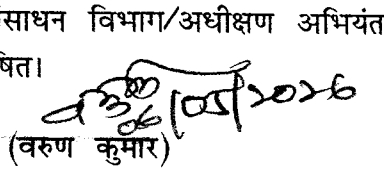 साधन विभाग/अधीक्षण अभियंत
षित।
06/05/2026
(वरुण कुमार)